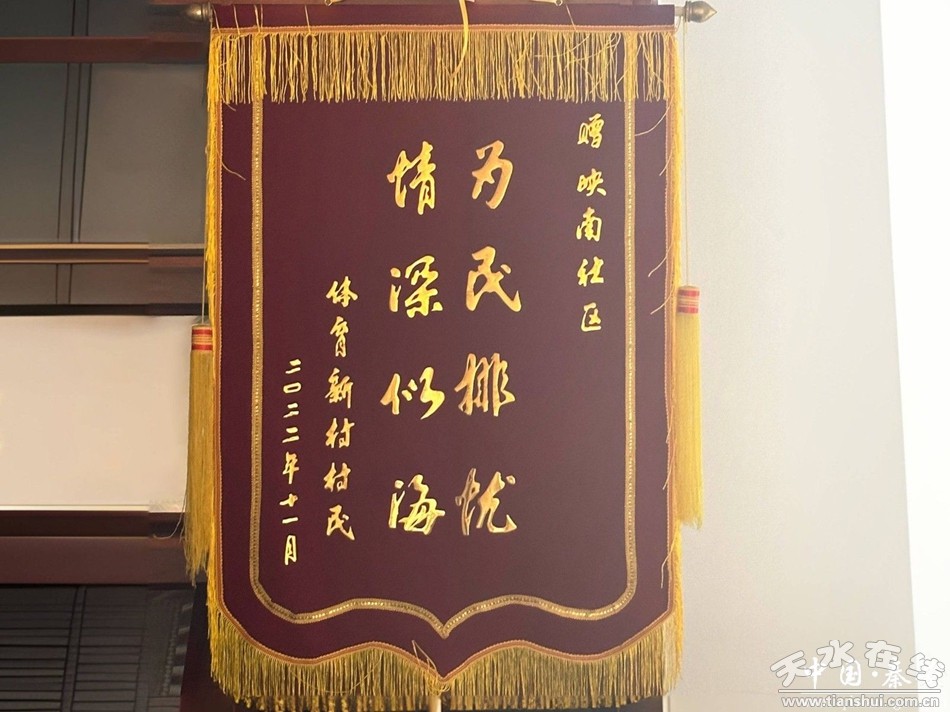 赠映南社区
为民排忧
情深似海
体育新村村民
二〇二二年十一月
天水在线
中国·秦
www.tianshui.com.cn